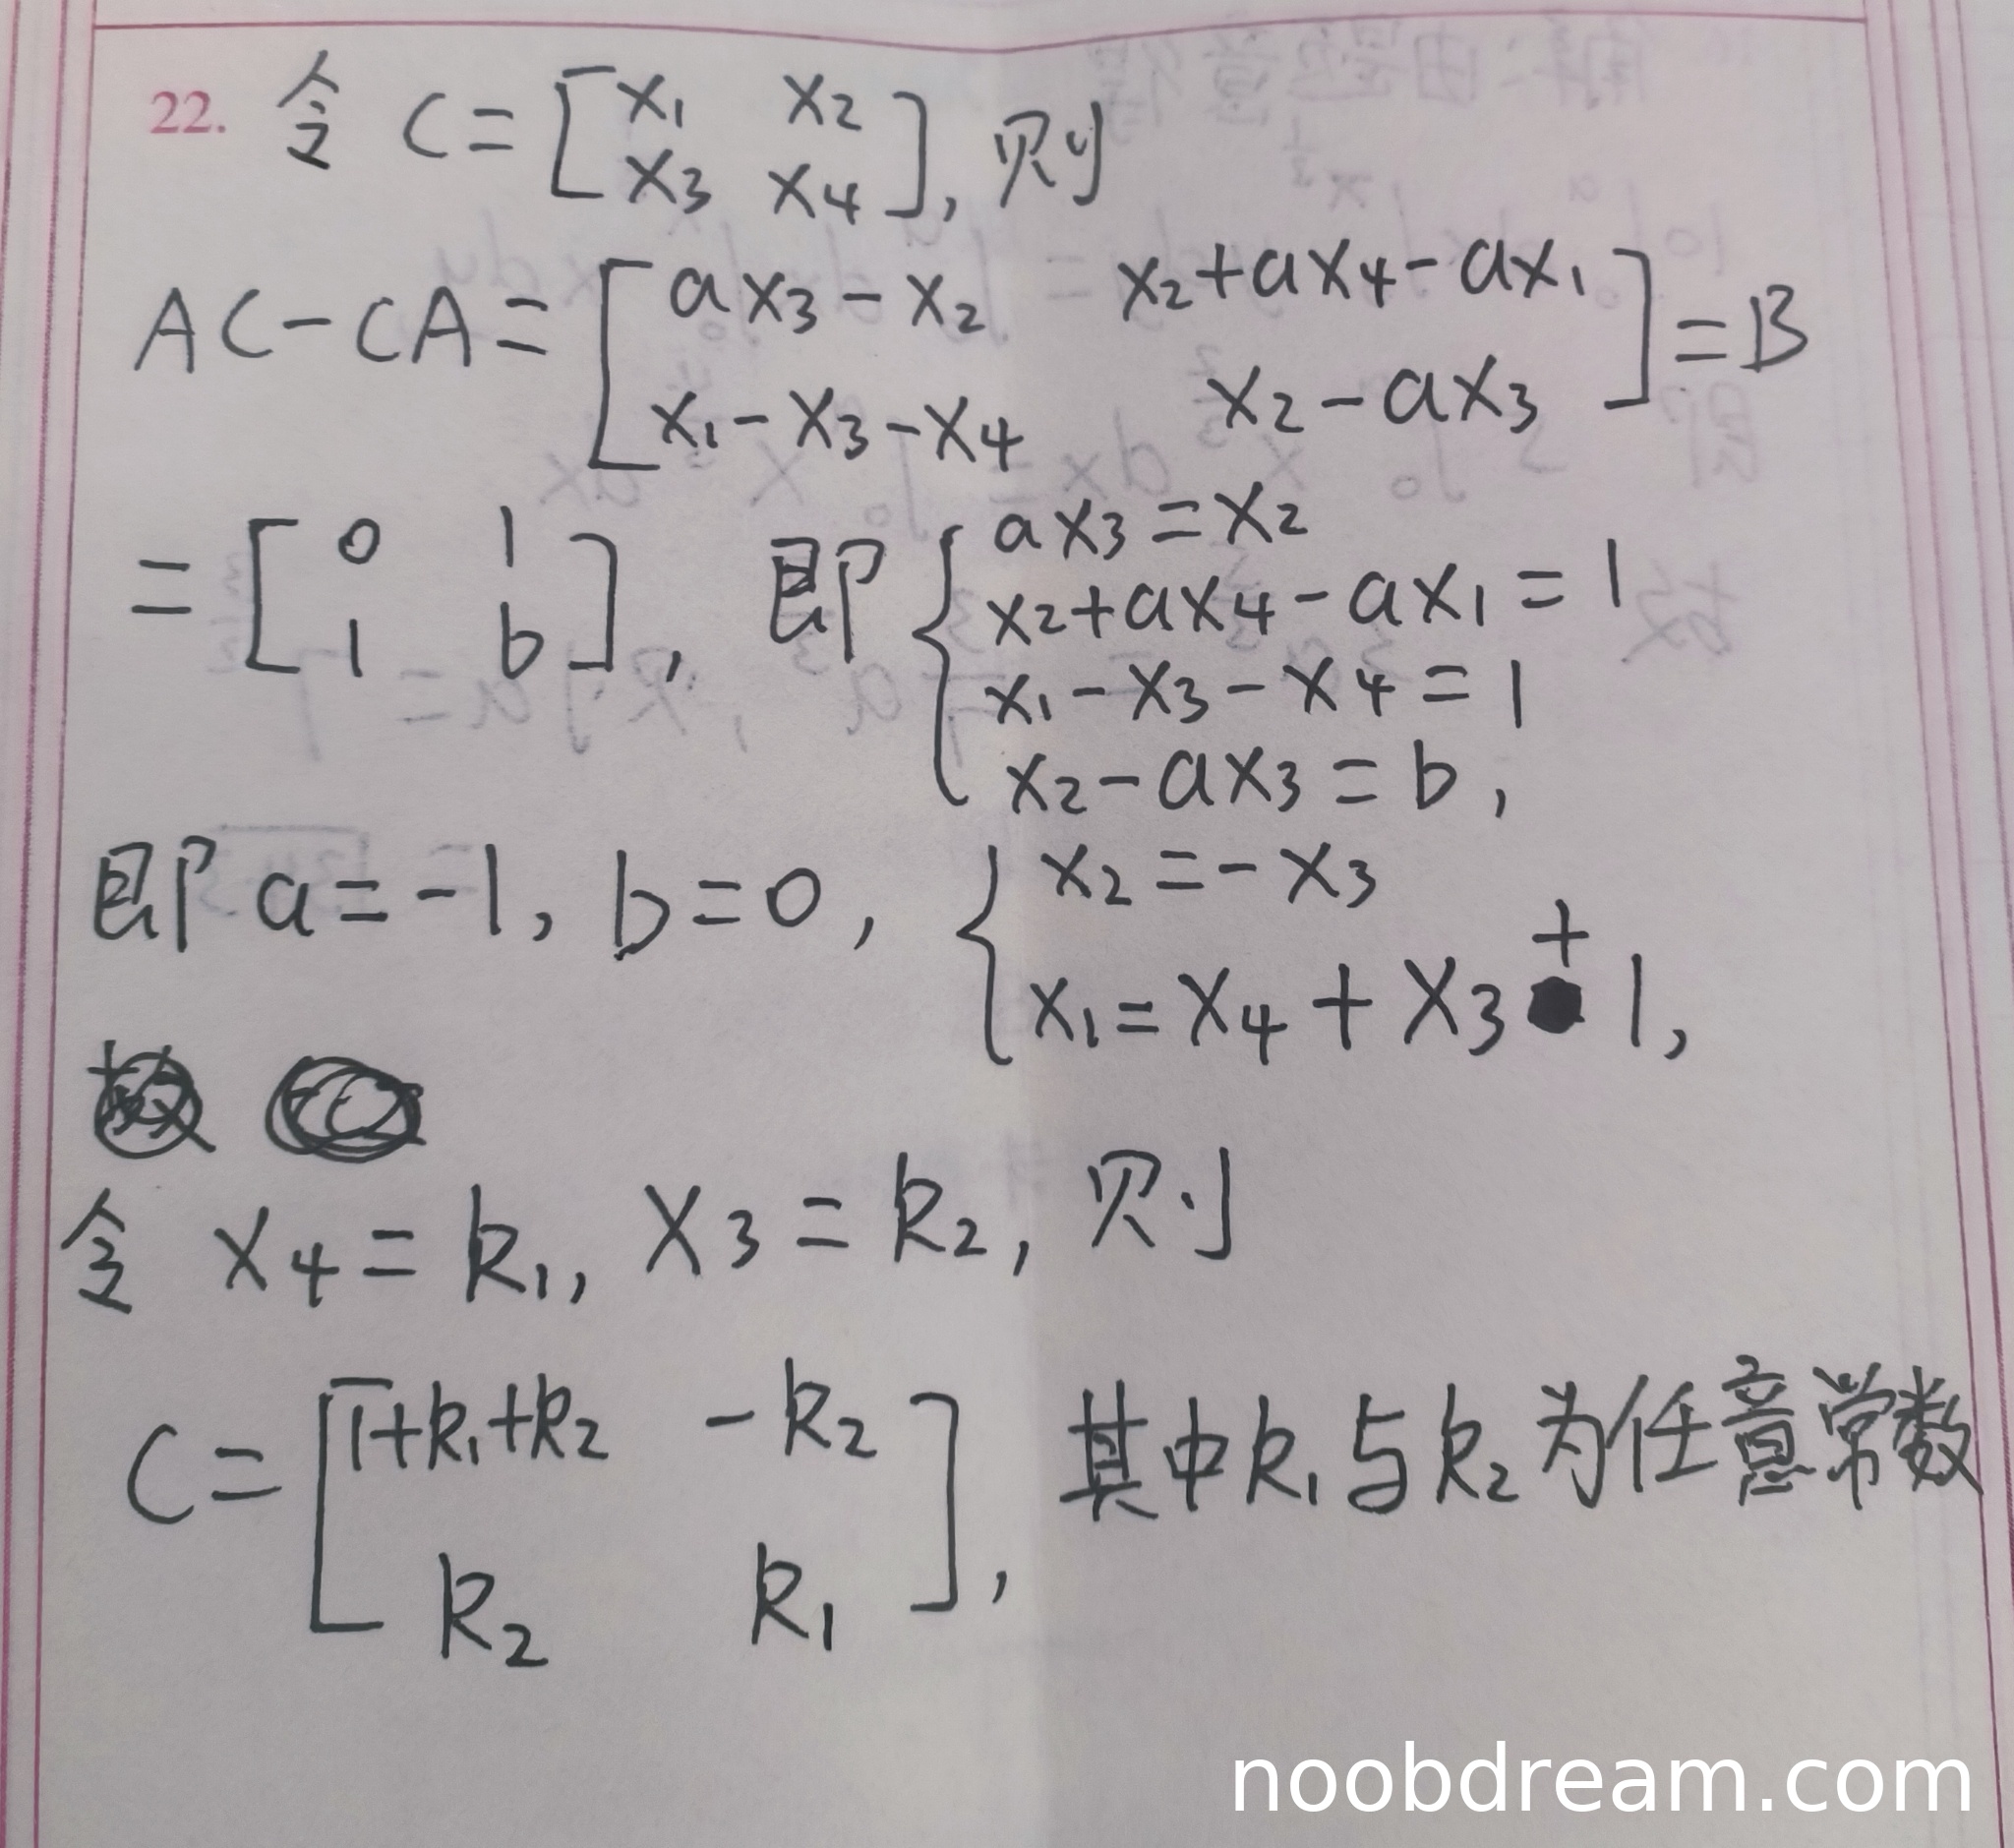 22. 令 C = [x₁ x₂
x₃ x₄], 则
AC - CA = [ax₃ - x₂ x₂ + ax₄ - ax₁
x₁ - x₃ - x₄ x₂ - ax₃] = B
= [0 1
1 b], 即 {ax₃ = x₂
x₂ + ax₄ - ax₁ = 1
x₁ - x₃ - x₄ = 1
x₂ - ax₃ = b,
即 a = -1, b = 0, {x₂ = -x₃
x₁ = x₄ + x₃ + 1,
令 x₄ = k₁, x₃ = k₂, 则
C = [1+k₁+k₂ -k₂
k₂ k₁], 其中k₁与k₂为任意常数
noobdream.com